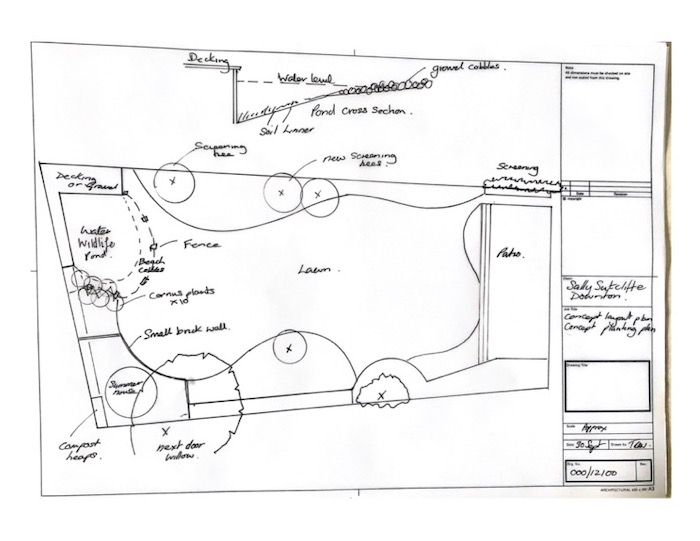 Decking
Water level
gravel cobbles.
Pond Cross Section.
Soil Linner
Screening
tree
new Screening
trees.
Screening
Decking
or Gravel
Water
Wildlife
Pond.
Fence
Beach
Cobbles
Cornus plants
x10
Lawn.
Patio.
Small brick wall.
Summer
house
Compost
heaps.
next door
willow.
Note:
All dimensions must be checked on site
and not scaled from this drawing.
Date
Revision
© copyright
Sally Sutcliffe
Downton.
Job Title
Concept layout plan
Concept planting plan
Drawing Title
Scale Approx
Date 30 Sept Drawn by
Drg. No. Rev.
000/12/00